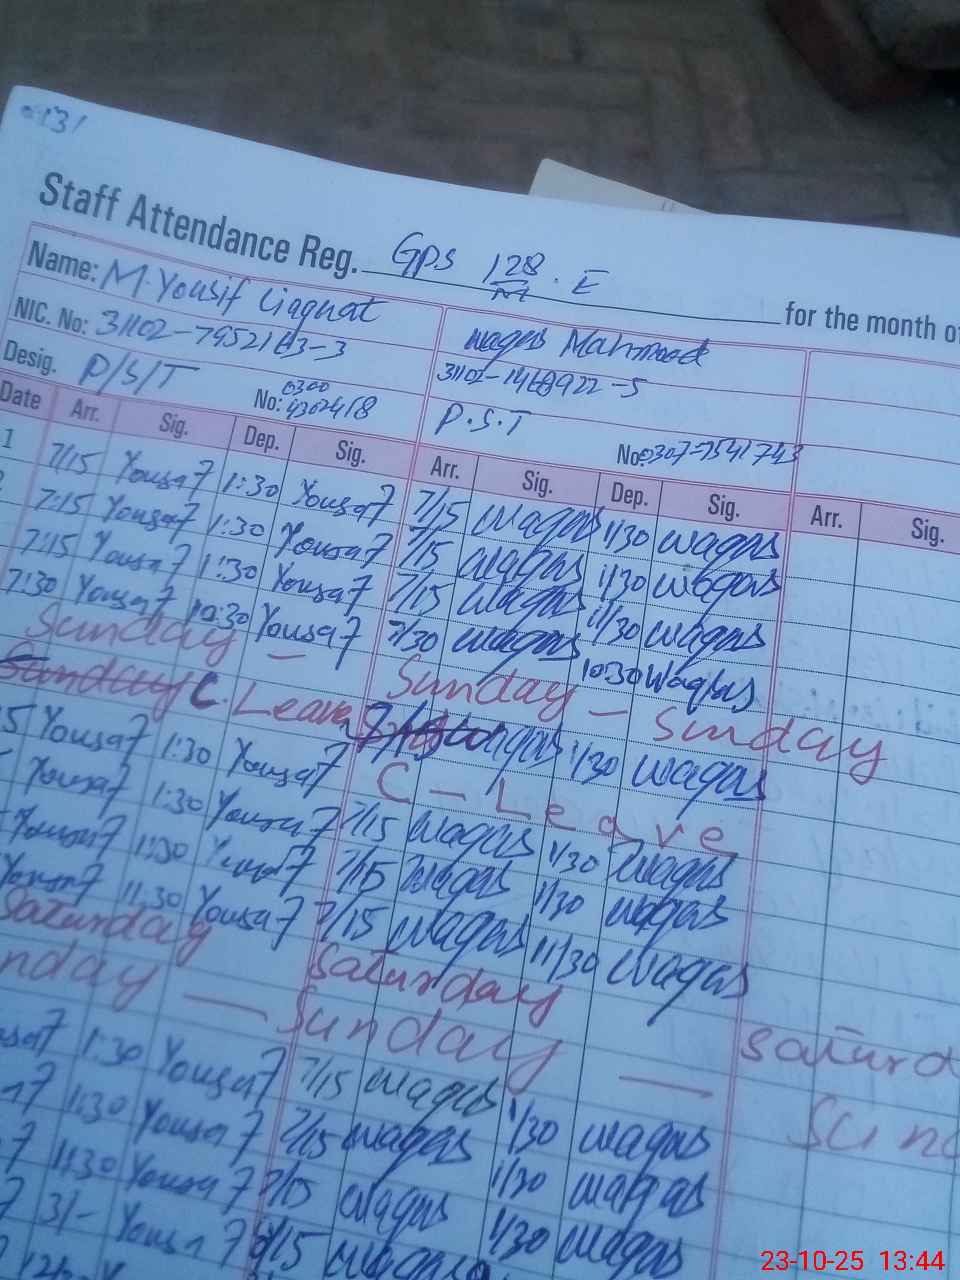 131
Staff Attendance Reg. GPS 128/M . E for the month of
Name: M. Yousif Liaqnat Waqas Mahmood
NIC. No: 31102-7952163-3 31102-1468922-5
Desig. P/S/T No: 0300 4302418 P.S.T No: 0307-7541743
Date Arr. Sig. Dep. Sig. Arr. Sig. Dep. Sig. Arr. Sig.
1 7/15 Yousaf 1:30 Yousaf 7/15 waqas 1/30 waqas
7:15 Yousaf 1:30 Yousaf 7/15 waqas 1/30 waqas
7:15 Yousaf 1:30 Yousaf 7/15 waqas 11/30 waqas
7:30 Yousaf 10:30 Yousaf 7/30 waqas 10:30 Waqas
Sunday — Sunday — Sunday
C. Leave waqas 1/30 waqas
Yousaf 1:30 Yousaf C - Leave
Yousaf 1:30 Yousaf 7/15 waqas 1/30 waqas
Yousaf 1:30 Yousaf 7/15 waqas 1/30 waqas
Yousaf 11:30 Yousaf 7/15 waqas 11/30 waqas
Saturday Saturday Saturd
nday — Sunday — Sun
1:30 Yousaf 7/15 waqas 1/30 waqas
1:30 Yousaf 7/15 waqas 1/30 waqas
1:30 Yousaf 7/15 waqas 1/30 waqas
3/- Yousaf 7/15 waqas
23-10-25 13:44